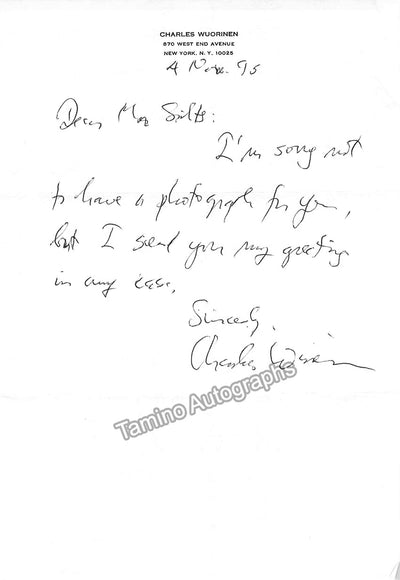 CHARLES WUORINEN
870 WEST END AVENUE
NEW YORK, N. Y. 10025
4 Nov. 95
Dear
I'm sorry not
to have a photograph for you,
but I send you my greetings
in any case.
Sincerely,
Charles Wuorinen
Tamino Autographs